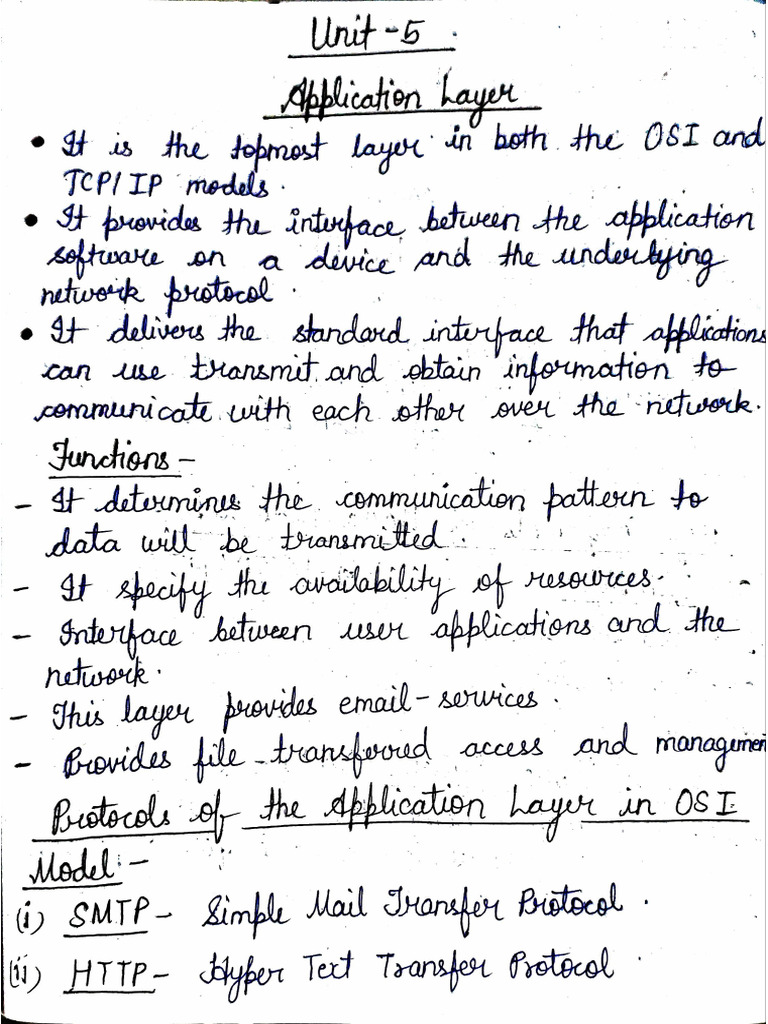 Unit-5
Application Layer
• It is the topmost layer in both the OSI and
TCP/IP models.
• It provides the interface between the application
software on a device and the underlying
network protocol.
• It delivers the standard interface that applications
can use transmit and obtain information to
communicate with each other over the network.
Functions -
- It determines the communication pattern to
data will be transmitted.
- It specify the availability of resources.
- Interface between user applications and the
network.
- This layer provides email-services.
- Provides file transferred access and management
Protocols of the Application Layer in OSI
Model :-
(i) SMTP - Simple Mail Transfer Protocol.
(ii) HTTP - Hyper Text Transfer Protocol.